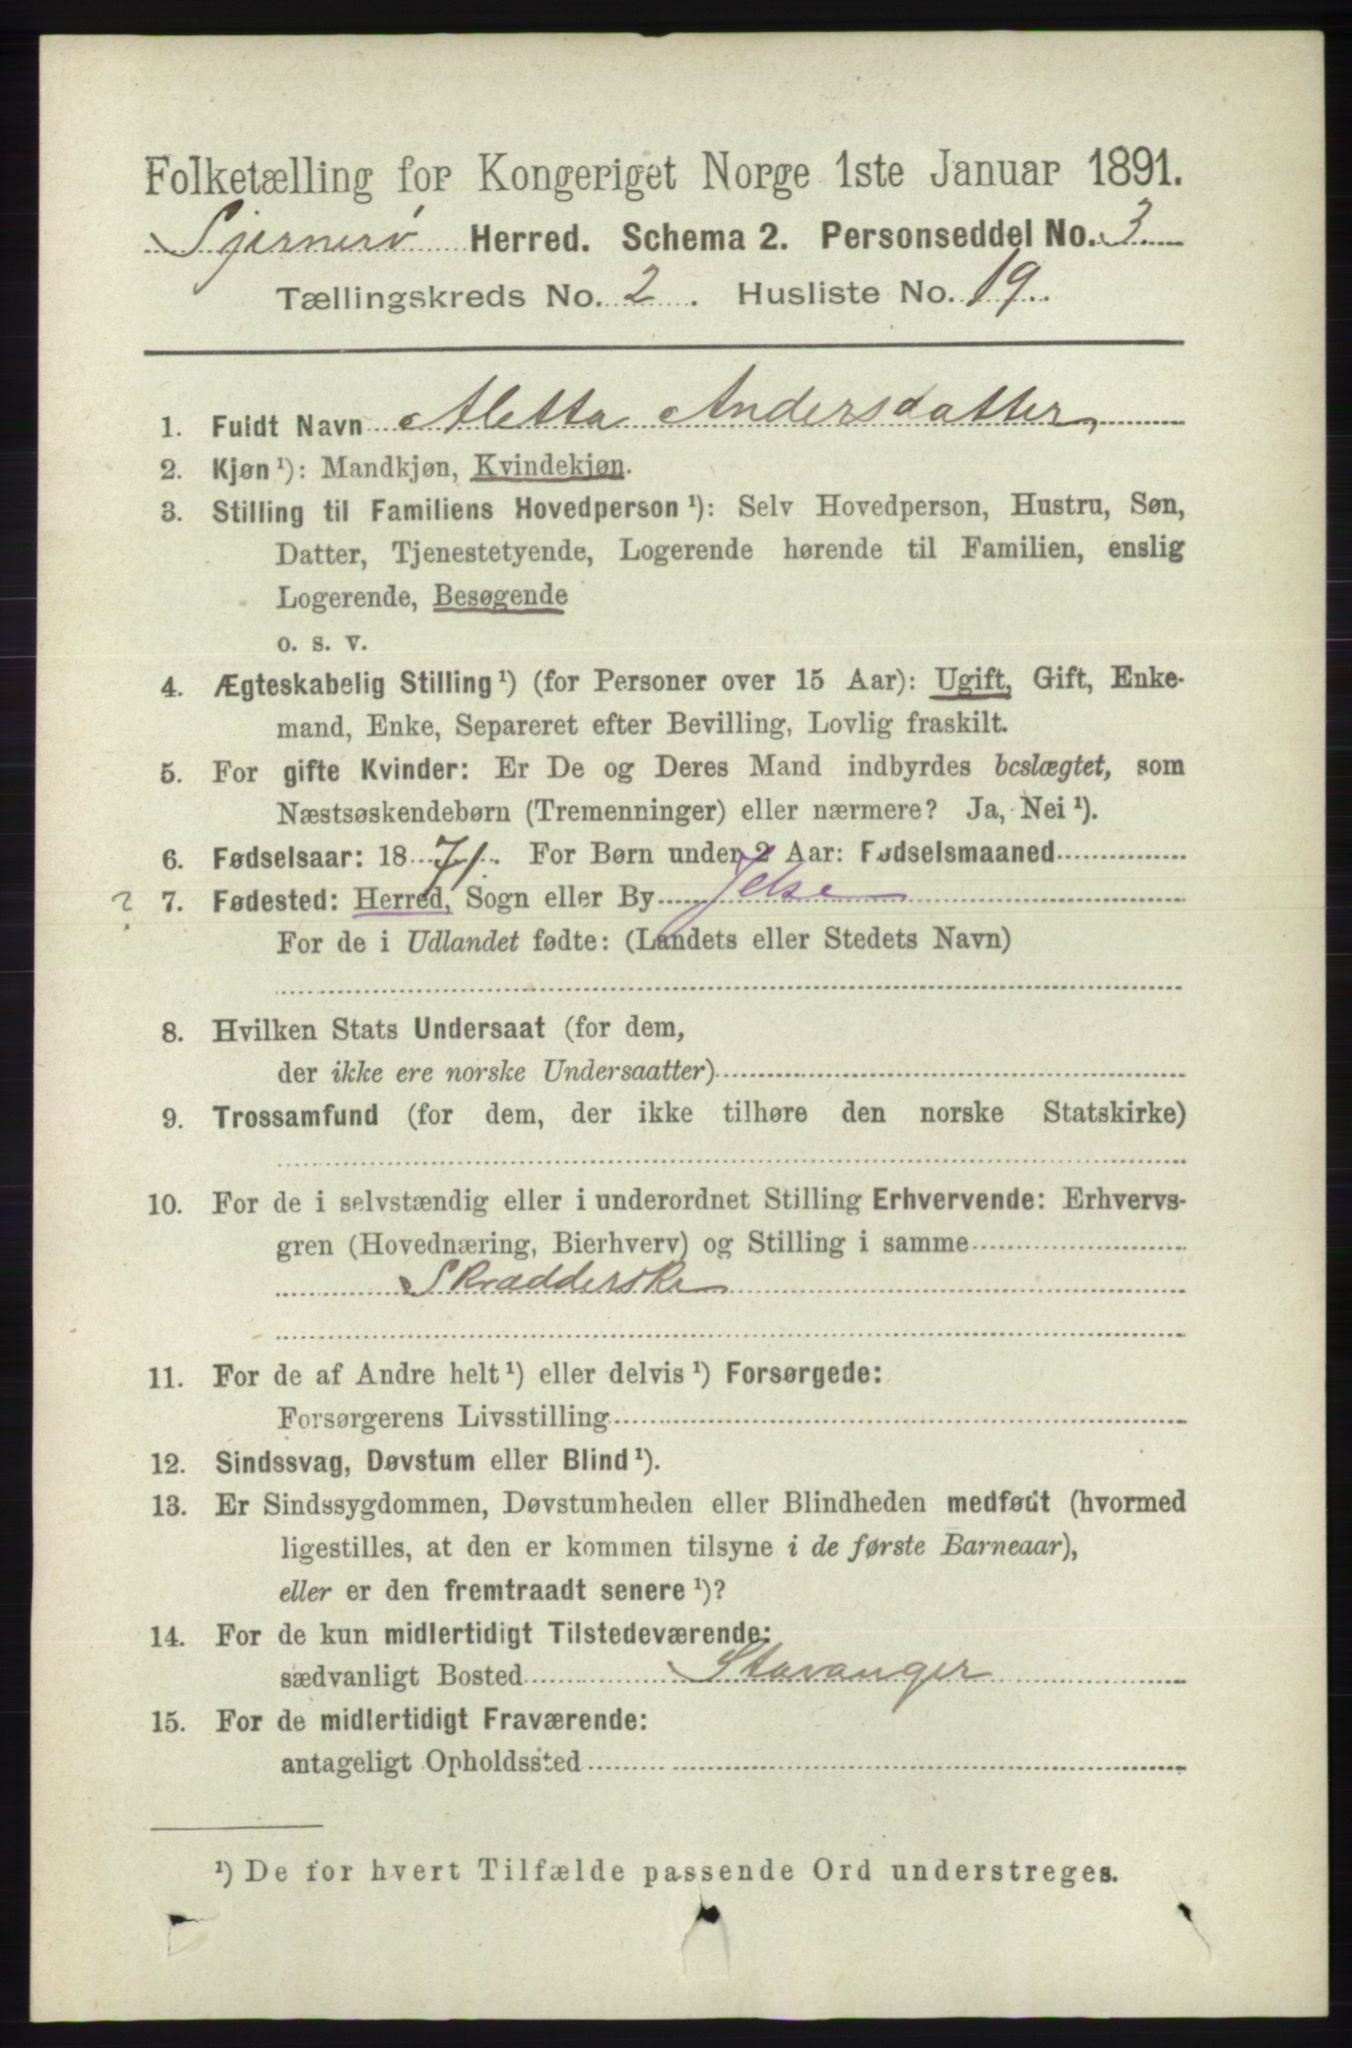 Folketælling for Kongeriget Norge 1ste Januar 1891.
Sjernerø Herred. Schema 2. Personseddel No. 3
Tællingskreds No. 2. Husliste No. 19.
1. Fuldt Navn Metta Andersdatter,
2. Kjøn ¹): Mandkjøn, Kvindekjøn.
3. Stilling til Familiens Hovedperson ¹): Selv Hovedperson, Hustru, Søn,
Datter, Tjenestetyende, Logerende hørende til Familien, enslig
Logerende, Besøgende
o. s. v.
4. Ægteskabelig Stilling ¹) (for Personer over 15 Aar): Ugift, Gift, Enke-
mand, Enke, Separeret efter Bevilling, Lovlig fraskilt.
5. For gifte Kvinder: Er De og Deres Mand indbyrdes beslægtet, som
Næstsøskendebørn (Tremenninger) eller nærmere? Ja, Nei ¹).
6. Fødselsaar: 1871. For Børn under 2 Aar: Fødselsmaaned
? 7. Fødested: Herred, Sogn eller By Jelse
For de i Udlandet fødte: (Landets eller Stedets Navn)
8. Hvilken Stats Undersaat (for dem,
der ikke ere norske Undersaatter)
9. Trossamfund (for dem, der ikke tilhøre den norske Statskirke)
10. For de i selvstændig eller i underordnet Stilling Erhvervende: Erhvervs-
gren (Hovednæring, Bierhverv) og Stilling i samme
Skrædderske
11. For de af Andre helt ¹) eller delvis ¹) Forsørgede:
Forsørgerens Livsstilling
12. Sindssvag, Døvstum eller Blind ¹).
13. Er Sindssygdommen, Døvstumheden eller Blindheden medfødt (hvormed
ligestilles, at den er kommen tilsyne i de første Barneaar),
eller er den fremtraadt senere ¹)?
14. For de kun midlertidigt Tilstedeværende:
sædvanligt Bosted Stavanger
15. For de midlertidigt Fraværende:
antageligt Opholdssted
¹) De for hvert Tilfælde passende Ord understreges.